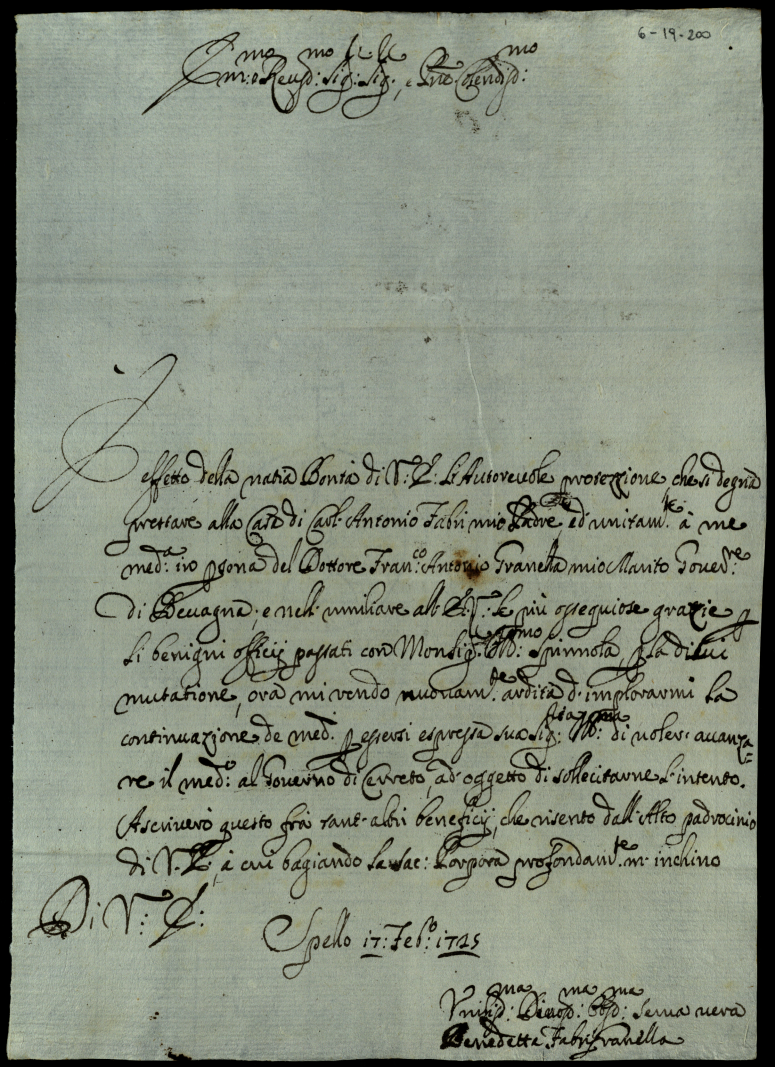 6-19-200
Em:o Reud:mo Sig: Sig:, e Pne Colendis:mo
È effetto della natia Bontà di V: E: l'Autoreuole protezzione, che si degna
prestare alla Casa di Carl' Antonio Fabri mio Padre, ed' unitam:te à me
med:a in psona del Dottore Fran:co Antonio Granella mio Marito Gouer:re
di Beuagna; e nell' umiliare all' E: V: le più ossequiose grazie p
li benigni officij passati con Monsig: Ill:mo Spinnola p la di lui
mutatione, ora mi rendo nuouam:te ardita d' implorarmi la
continuazione de med: p essersi espressa sua Sig:ria Ill:ma di uoler' auanza=
re il med:o al Gouerno di Cerreto, ad' oggetto di sollecitarne l' intento.
Ascriuerò questo frà tant' altri beneficij, che risento dall' Alto padrocinio
di V: E:, à cui bagiando la sac: Porpora profondam:te m' inchino
Di V: E:
Spello 17: Feb:o 1725
Vmilis:ma Diuot:ma Obl:ma Serua uera
Benedetta Fabri Granella